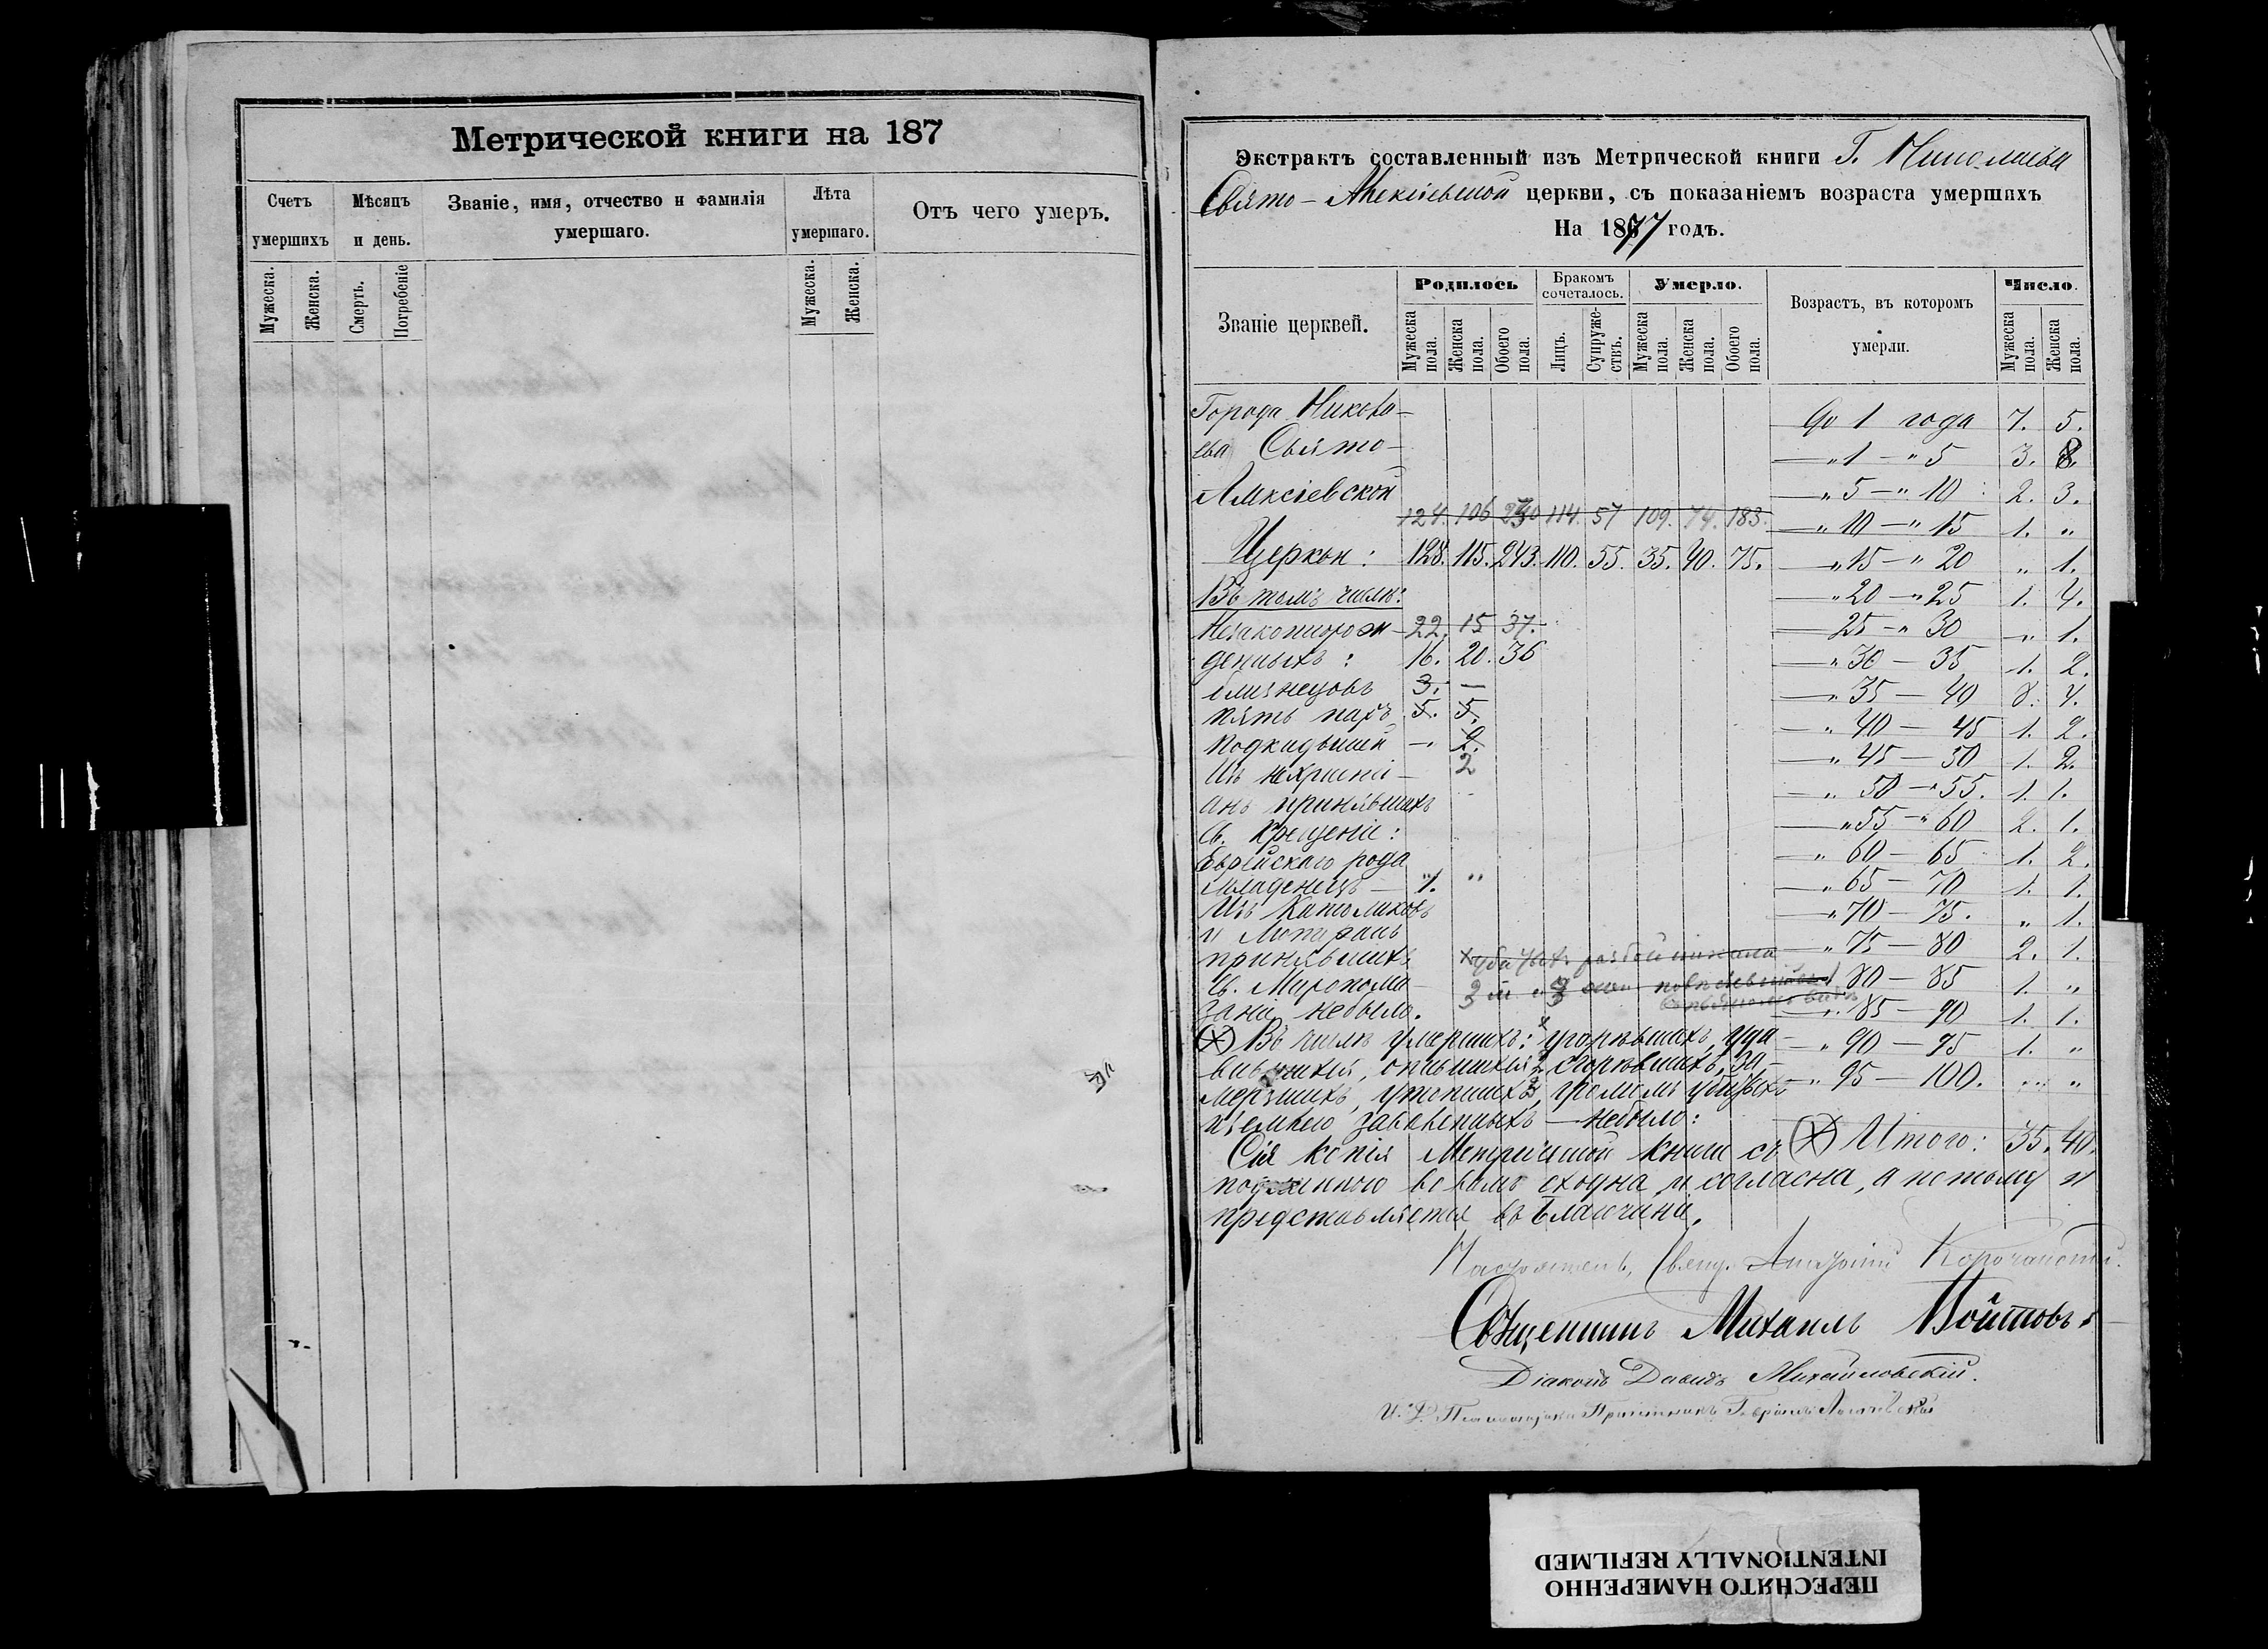 Метрической книги на 187
Счетъ умершихъ
Мѣсяцъ и день.
Званіе, имя, отчество и фамилія умершаго.
Лѣта умершаго.
Отъ чего умеръ.
Мужеска.
Женска.
Смерть.
Погребеніе
Мужеска.
Женска.
Экстрактъ составленный изъ Метрической книги Г. Николаева
Свято-Алексіевской церкви, съ показаніемъ возраста умершихъ
На 1877 годъ.
Званіе церквей.
Родилось
Бракомъ сочеталось.
Умерло.
Возрастъ, въ которомъ умерли.
Число.
Мужеска пола.
Женска пола.
Обоего пола.
Лицъ.
Супружествъ.
Мужеска пола.
Женска пола.
Обоего пола.
Мужеска пола.
Женска пола.
Города Никола-
ева Свято-
Алексіевской
124. 106 230 114. 57 109. 74. 183.
Церкви: 128. 115. 243. 110. 55. 35. 40. 75.
Въ томъ числѣ:
Незаконнорож- 22. 15 37.
денныхъ: 16. 20. 36
близнецовъ 3. —
пять паръ 5. 5.
подкидышей —„ 2.
Изъ нехристі- 2
анъ принявшихъ
Св. Крещеніе:
Еврейскаго рода
младенецъ — 1. „
Изъ Католиковъ
и Лютеранъ
принявшихъ
Св. Миропома-
заніе небыло.
До 1 года 7. 5.
—„ 1 —„ 5 3. 8.
—„ 5 —„ 10 2. 3.
—„ 10 —„ 15 1. „
—„ 15 —„ 20 „ 1.
—„ 20 —„ 25 1. 4.
— 25 —„ 30 „ 1.
—„ 30 — 35 1. 2.
—„ 35 — 40 8. 4.
—„ 40 — 45 1. 2.
—„ 45 — 50 1. 2.
—„ 50 —„ 55. 1. 1.
—„ 55 —„ 60 2. 1.
—„ 60 — 65 1. 2.
—„ 65 — 70 1. 1.
—„ 70 — 75. „ 1.
—„ 75 — 80 2. 1.
80 — 85 1. „
—„ 85 — 90 1. 1.
—„ 90 — 95 1. „
—„ 95 — 100. „ „
Итого: 35. 40.
Въ числѣ умершихъ: угорѣвшихъ, уда-
вившихся, опившихся 2, сгорѣвшихъ, за-
мерзшихъ, утопшихъ 3, громомъ убитыхъ
и землею заваленныхъ — небыло:
Сія копія Метрической книги съ
подлинною во всемъ сходна и согласна, а потому и
представляется въ Благочиніе.
Настоятель, Свящ. Корочанскій.
Священникъ Михаилъ Войтовъ.
Діаконъ Давидъ Михайловскій.
И. Д. Псаломщика Гавріилъ
ПЕРЕСНЯТО НАМЕРЕННО
INTENTIONALLY REFILMED